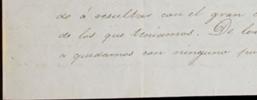 do á resultar con el gran
de los que teniamos. De los
a quedamos con ninguno